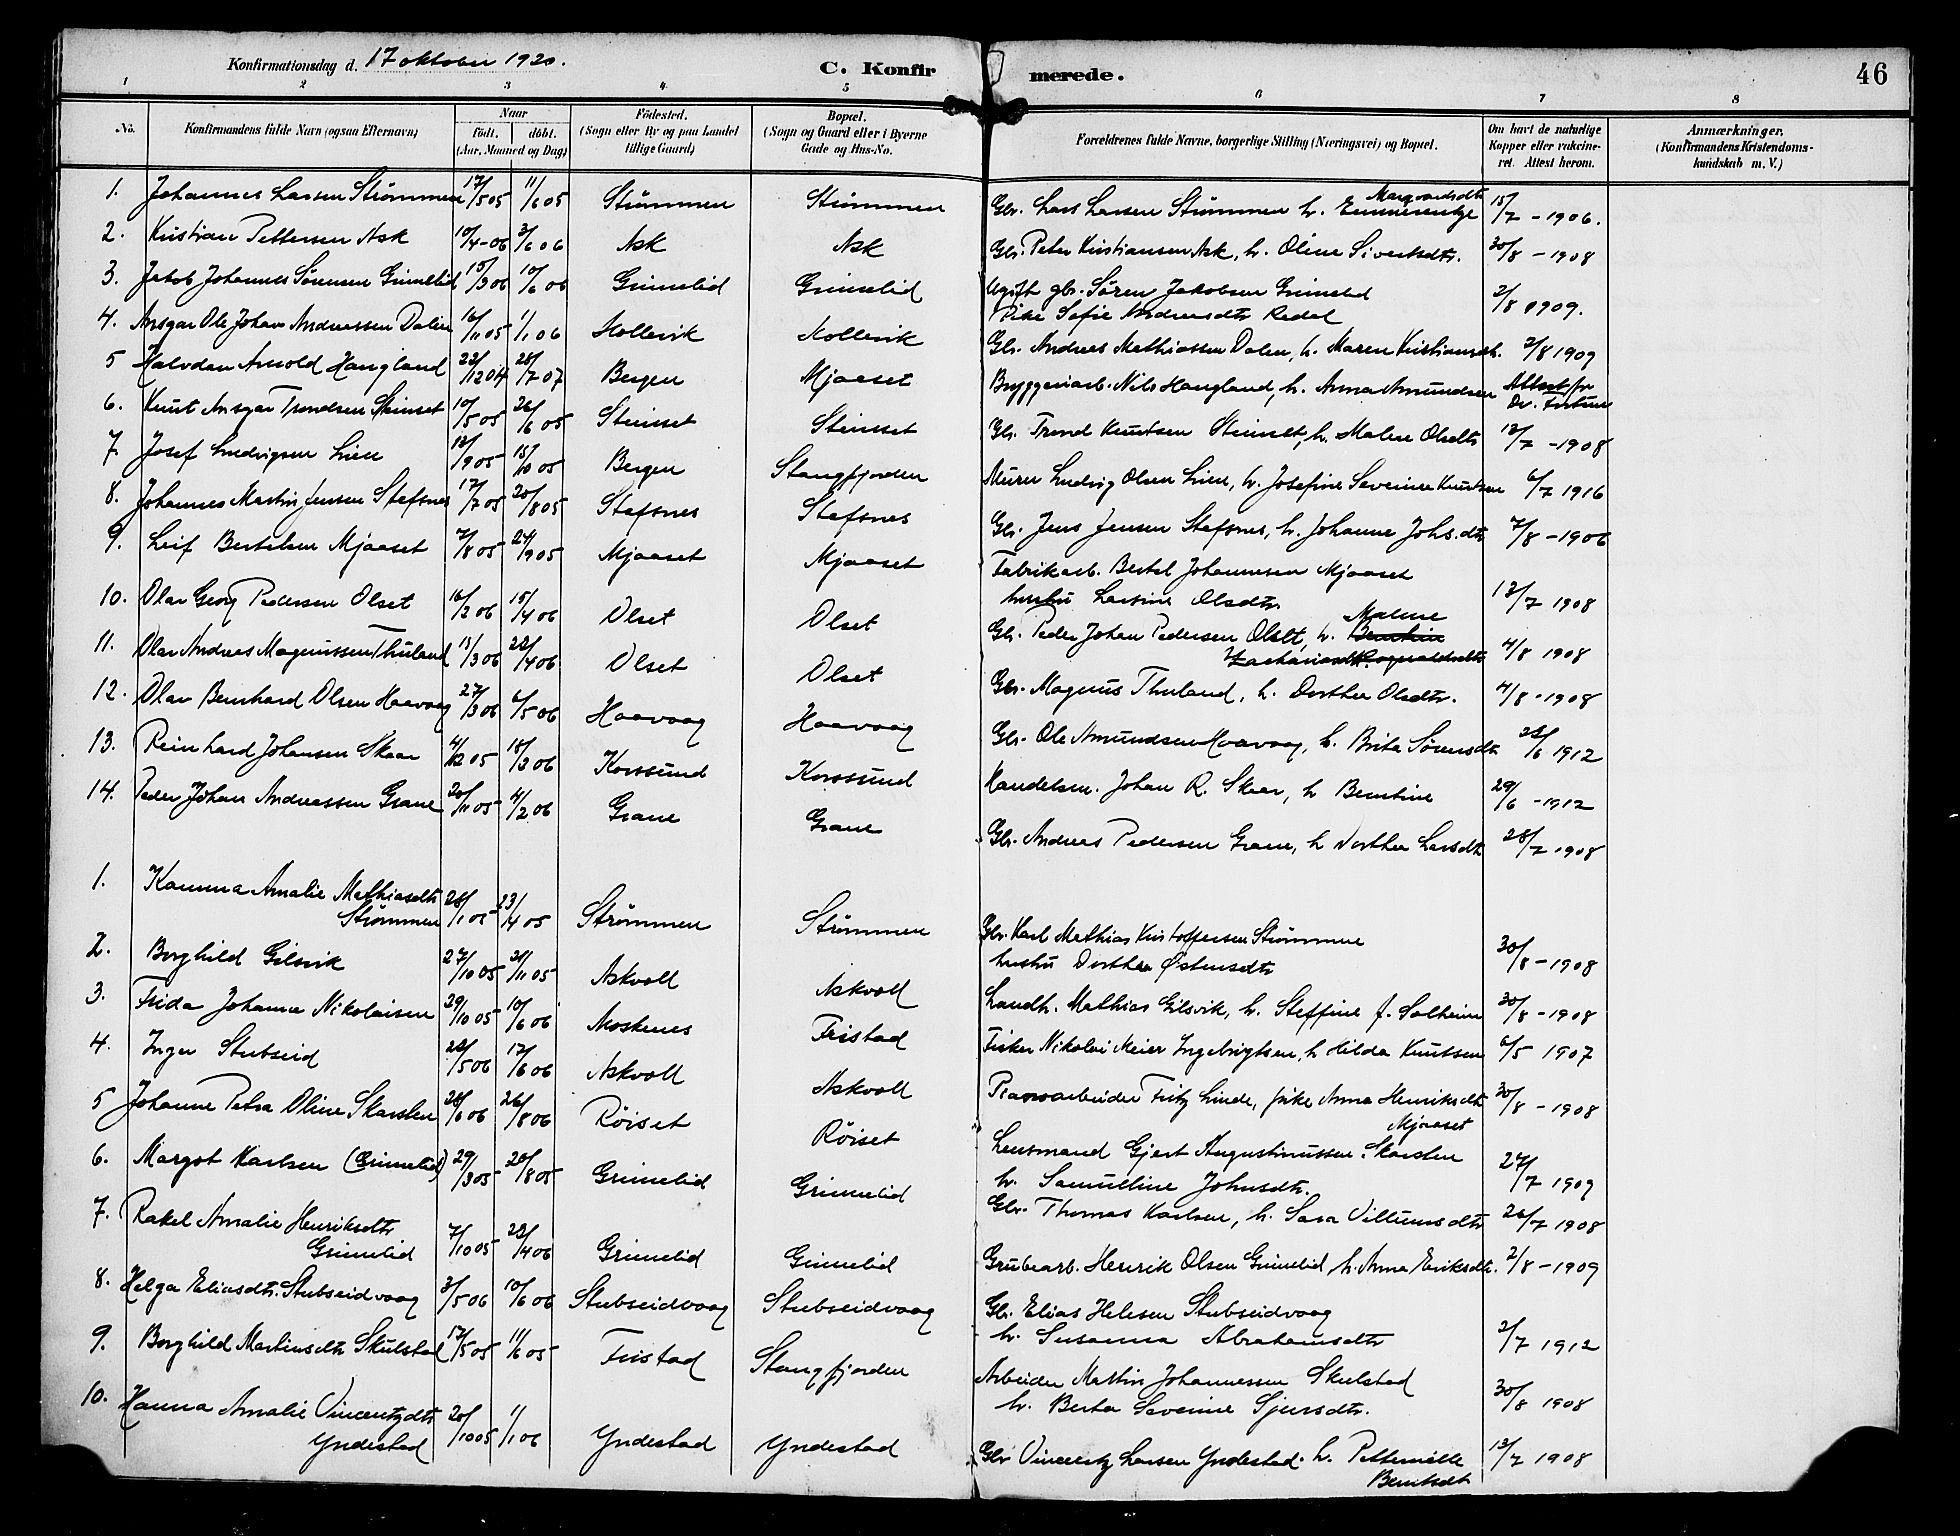 Konfirmationsdag d. 17 oktober 1920.
C. Konfirmerede.
46
1 2 3 4 5 6 7 8
No. Konfirmandens fulde Navn (ogsaa Efternavn) Naar födt. döbt. (Aar, Maaned og Dag) Födested. (Sogn eller By og paa Landet tillige Gaard) Bopæl. (Sogn og Gaard eller i Byerne Gade og Hus-No. Forældrenes fulde Navne, borgerlige Stilling (Næringsvei) og Bopæl. Om havt de naturlige Kopper eller vaccineret. Attest herom. Anmærkninger. (Konfirmandens Kristendomskundskab m. V.)
1. Johannes Larsen Strømmen 17/5 05 11/6 05 Strømmen Strømmen Gbr. Lars Larsen Strømmen h. Emmerentze Marqvardsdtr 15/7 - 1906.
2. Kristian Pettersen Ask 10/4-06 3/6 06 Ask Ask Gbr. Peter Kristiansen Ask, h. Oline Sivertsdtr. 30/8 - 1908
3. Jakob Johannes Sørensen Grimelid 15/3 06 10/6 06 Grimelid Grimelid Ugift gbr. Søren Jakobsen Grimelid
Pike Sofie Andreasdtr Redal 2/8 1909.
4. Ansgar Ole Johan Andreassen Dalen 16/11 05 1/1 06 Kollevik Kollevik Gbr. Andreas Mathiassen Dalen, h. Maren Kristiansdtr. 2/8 1909
5 Halvdan Arnold Haugland 22/12 04 28/7 07 Bergen Mjaaset Bryggeriarb. Nils Haugland, h. Anna Amundsen Attest fr Dr. Fortun
6. Knut Ansgar Trondsen Steinset 10/5 05 26/6 05 Steinset Steinset Gbr. Trond Knutsen Steinset, h. Malene Olsdtr 13/7 - 1908
7. Josef Ludvigsen Lien 12/9 05 15/10 05 Bergen Stangfjorden Murer Ludvig Olsen Lien, h. Josefine Severine Knutsen 6/7 1916
8. Johannes Martin Jensen Stafsnes 17/7 05 20/8 05 Stafsnes Stafsnes Gbr. Jens Jensen Stafsnes, h. Johanne Johs.dtr 7/8 - 1906
9. Leif Bertelsen Mjaaset 7/8 05 24/9 05 Mjaaset Mjaaset Fabrikarb. Bertel Johannesen Mjaaset
hustru Larsine Olsdtr. 13/7 1908
10. Olav Georg Pedersen Olset 16/2 06 15/4 06 Olset Olset Gbr. Peder Johan Pedersen Olset, h. Malene
Zachariasdtr 4/8 1908
11. Olav Andreas Magnussen Thuland 13/3 06 22/4 06 Olset Olset Gbr. Magnus Thuland, h. Dorthea Olsdtr. 4/8 - 1908
12. Olav Bernhard Olsen Haavaag 27/3 06 6/5 06 Haavaag Haavaag Gbr. Ole Amundsen Haavaag, h. Brita Sørensdtr 28/6 1912
13. Reinhard Johansen Skaar 4/12 05 18/3 06 Korssund Korssund Handelsm. Johan R. Skaar, h Berntine 29/6 - 1912
14. Peder Johan Andreassen Grane 20/11 05 4/2 06 Grane Grane Gbr. Andreas Pedersen Grane, h Dorthea Larsdtr 28/7 1908
1. Kamma Amalie Mathiasdtr
Strømmen 28/1 05 23/4 05 Strømmen Strømmen Gbr. Karl Mathias Kristoffersen Strømmen
hustru Dorthea Østensdtr 30/8 - 1908
2. Borghild Gilsvik 27/10 05 21/11 05 Askvoll Askvoll Landh. Mathias Gilsvik, h. Steffine f. Solheim 30/8 - 1908
3. Frida Johanna Nikolaisen 29/10 05 10/6 06 Moskenes Fristad Fisker Nikolai Meier Ingebrigtsen, h Hilda Knutsen 6/5 1907
4. Inger Stubseid 22/5 06 17/6 06 Askvoll Askvoll Pianoarbeider Fritz Linde, pike Anna Henriksdtr
Mjaaset 30/8 - 1908
5 Johanne Petra Oline Skarsten 28/6 06 26/8 06 Røiset Røiset Lensmand Gjert Augustinussen Skarsten
h. Samuline Johnsdtr. 27/7 1909
6. Margot Karlsen (Grimelid) 29/3 05 20/8 05 Grimelid Grimelid Gbr. Thomas Karlsen, h. Sara Villumsdtr 26/7 1908
7. Rakel Amalie Henriksdtr
Grimelid 7/10 05 22/4 06 Grimelid Grimelid Grubearb. Henrik Olsen Grimelid, h. Anna Eriksdtr. 2/8 - 1909
8. Helga Eliasdtr. Stubseidvaag 3/5 06 10/6 06 Stubseidvaag Stubseidvaag Gbr. Elias Helesen Stubseidvaag
h. Susanna Abrahamsdtr 2/7 1912
9. Borghild Martinsdtr Skulstad 17/5 05 11/6 05 Fristad Stangfjorden Arbeider Martin Johannessen Skulstad
h. Berta Severine Sjursdtr. 30/8 1908
10. Hanna Amalie Vincentzdtr
Yndestad 20/10 05 1/1 06 Yndestad Yndestad Gbr Vincentz Larsen Yndestad. h. Petternille
Berntsdtr 13/7 1908